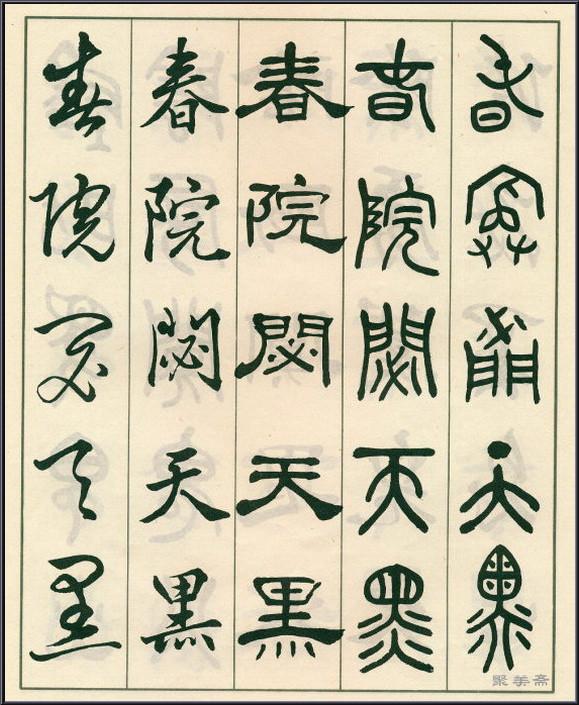 春院閟天黑
春院閟天黑
春院閟天黑
春院閟天黑
春院閟天黑
聚美斋